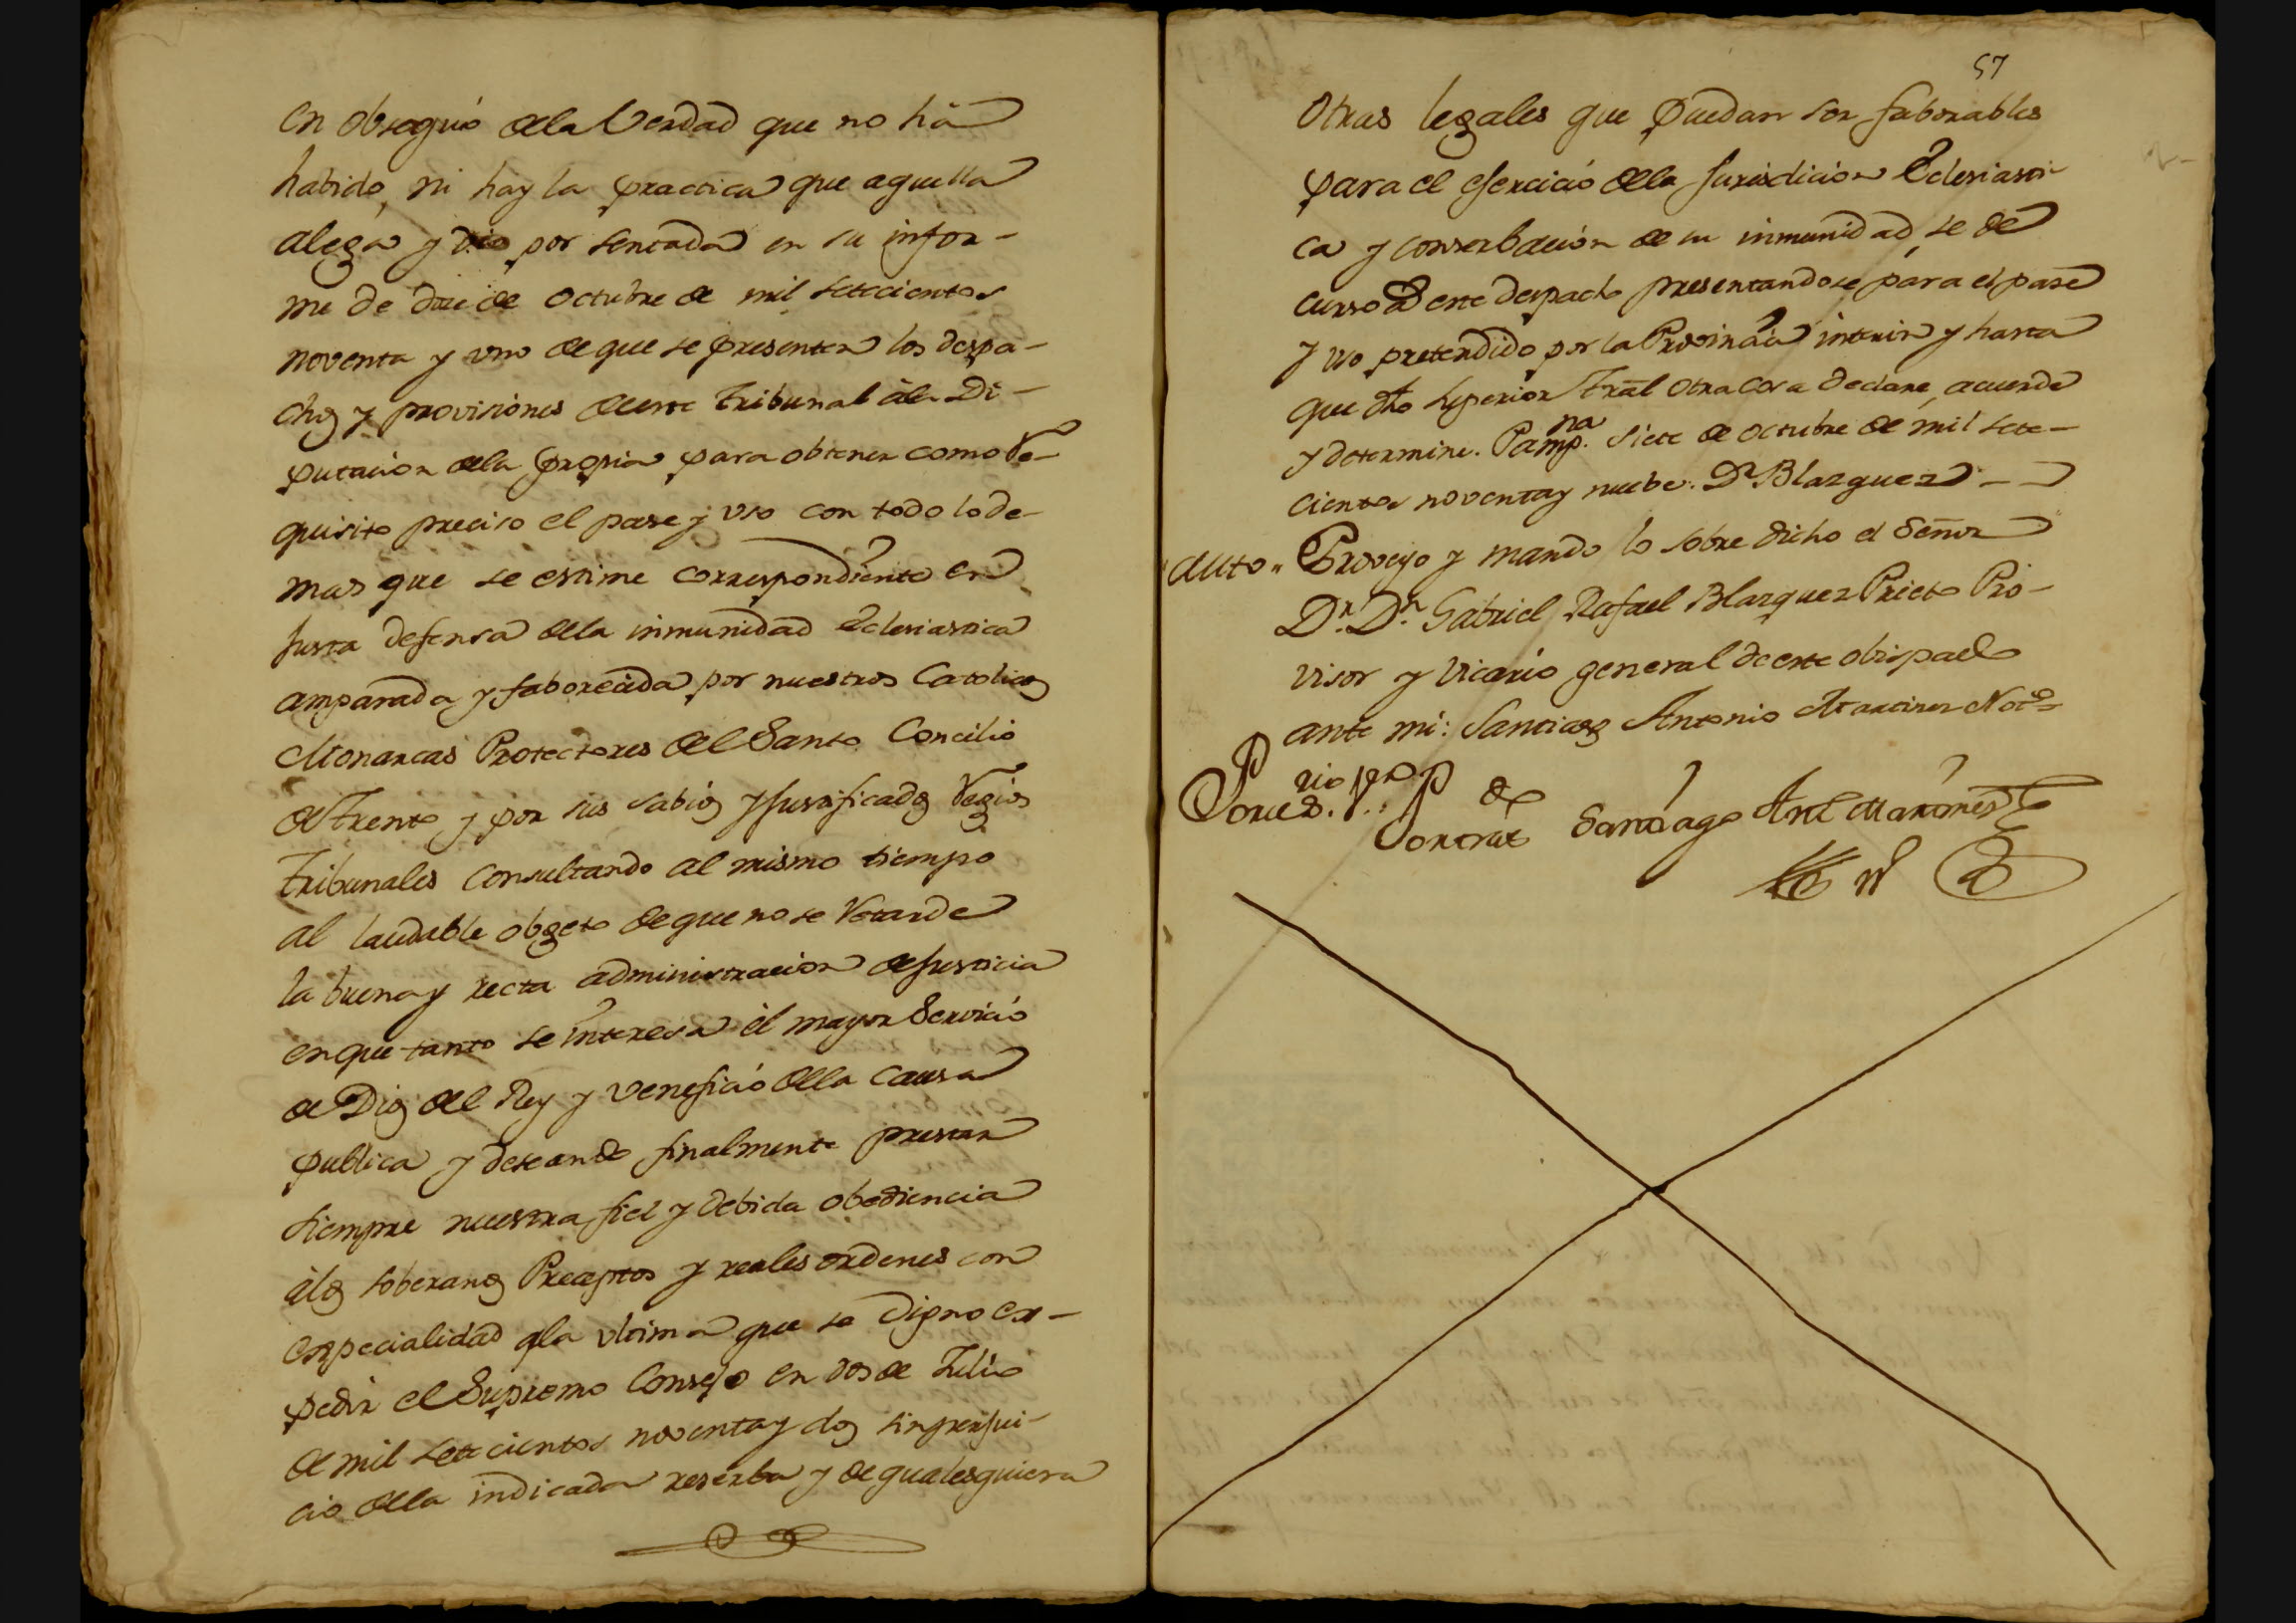 en obsequio dela Verdad que no há
habido, ni hay la practica que aquella
alega y dio por sentada en su infor-
me de doze de octubre de mil setecientos
noventa y uno de que se presenten los despa-
chos y provisiones deeste Tribunal ála Di-
putacion dela propia para obtener como Re-
quisito preciso el pase y uso con todo lo de-
mas que se estime correspondiente en
Justa defensa dela inmunidad Eclesiastica
amparada y faborecida por nuestros Catolicos
Monarcas Protectores del Santo Concilio
de Trento y por sus sabios y Justificados Regios
Tribunales consultando al mismo tiempo
al laudable obgeto de que no se Retarde
la buena y recta administracion de Justicia
en que tanto se interesa el mayor Servicio
de Dios del Rey y veneficio dela causa
publica y deseando finalmente prestar
siempre nuestra fiel y debida obediencia
álos soberanos Preceptos y reales ordenes con
especialidad ala ultima que se digno ex-
pedir el Supremo Consejo en dos de Julio
de mil setecientos noventa y dos sin perjui-
cio dela indicada reserba y de qualesquiera
57
otras legales que puedan ser faborables
para el exercicio dela Jurisdicion Eclesiasti-
ca y conserbacion de su inmunidad, se dé
curso á este despacho presentandose para el pase
y uso pretendido por la Provincia interin y hasta
que dho Superior Tral otra cosa declare, acuerde
y determine. Pampna. siete de octubre de mil sete-
cientos noventa y nuebe. Dr Blazquez
Auto. Proveyo y mando lo sobre dicho el Señor
Dr. Dn. Gabriel Rafael Blazquez Prieto Pro-
visor y Vicario general de este obispado
ante mi: Santiago Antonio Martinez Notº
Por tras. Santiago Antº Martinez